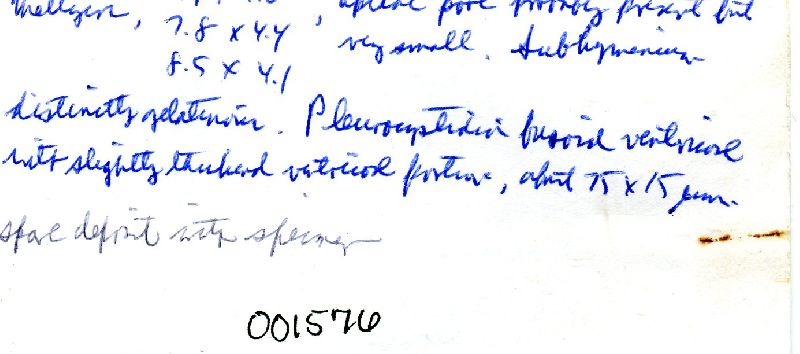 Meltzers, 7.8 x 4.4, apical pore probably present but
8.5 x 4.1 very small. Subhymenium
distinctly gelatinous. Pleurocystidia fusoid ventricose
with slightly thickened ventricose portion, about 75 x 15 µm.
spore deposit with specimen
001576